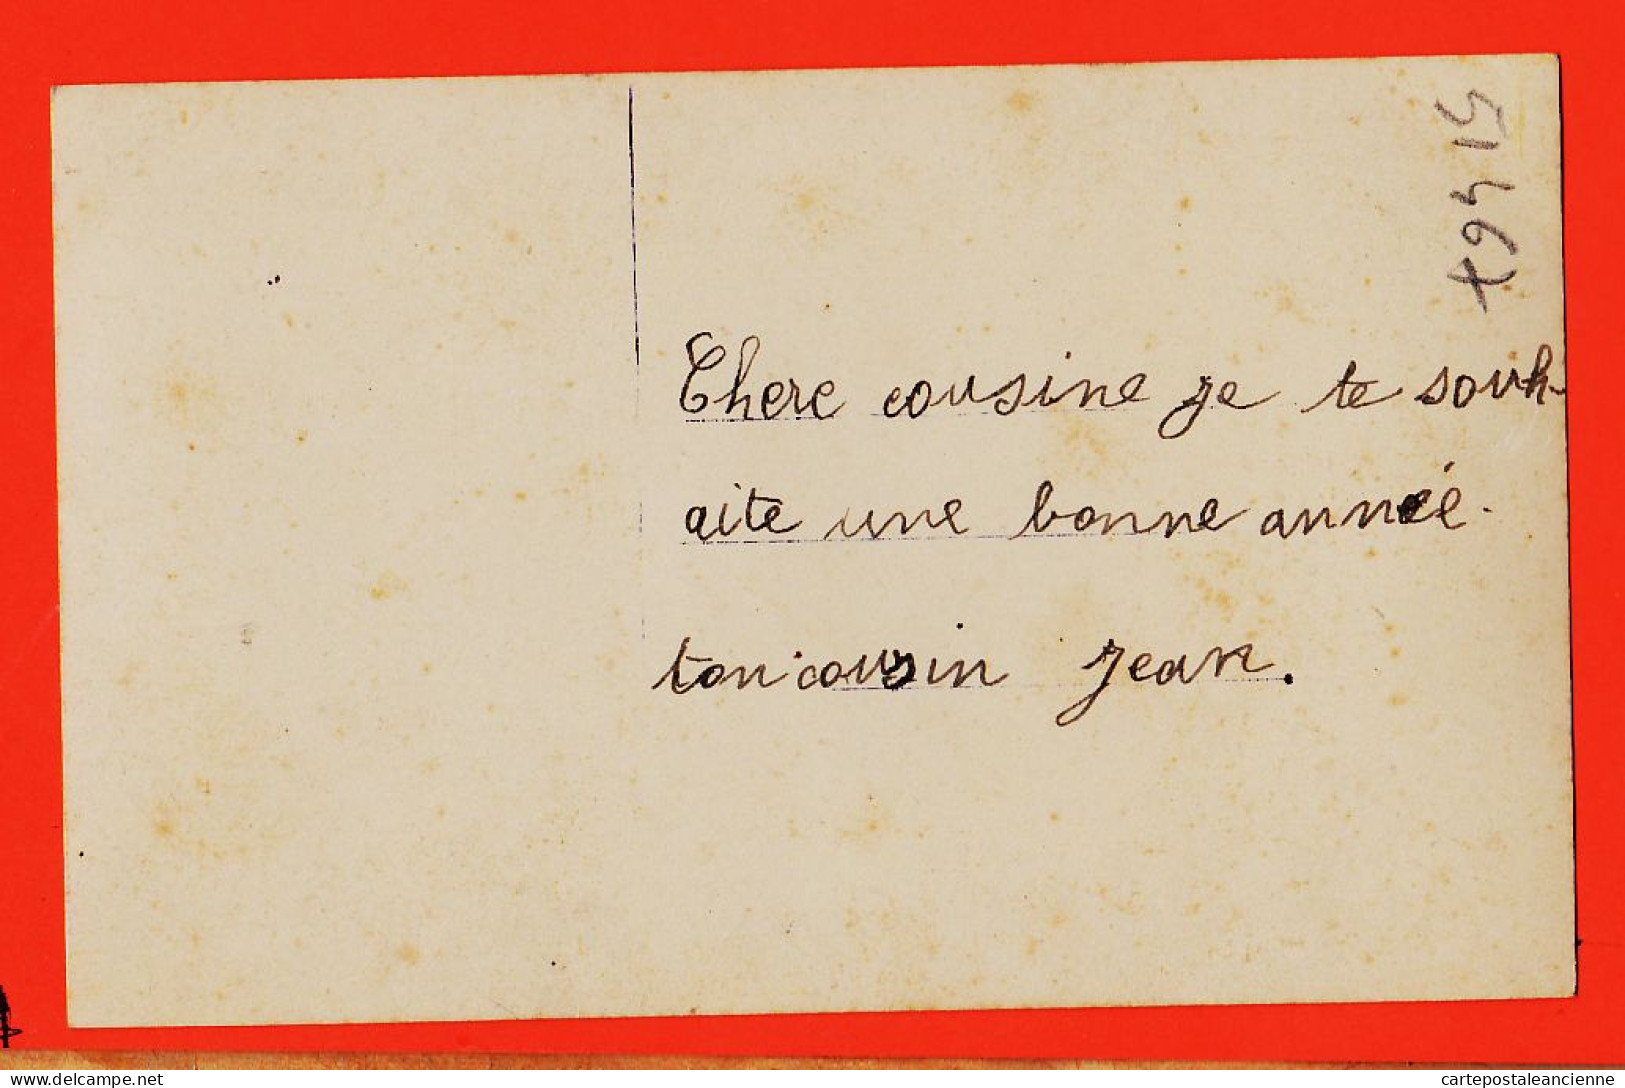 Chere cousine je te souh-
aite une bonne année.
ton cousin jean.
delcampe.net
cartepostaleancienne